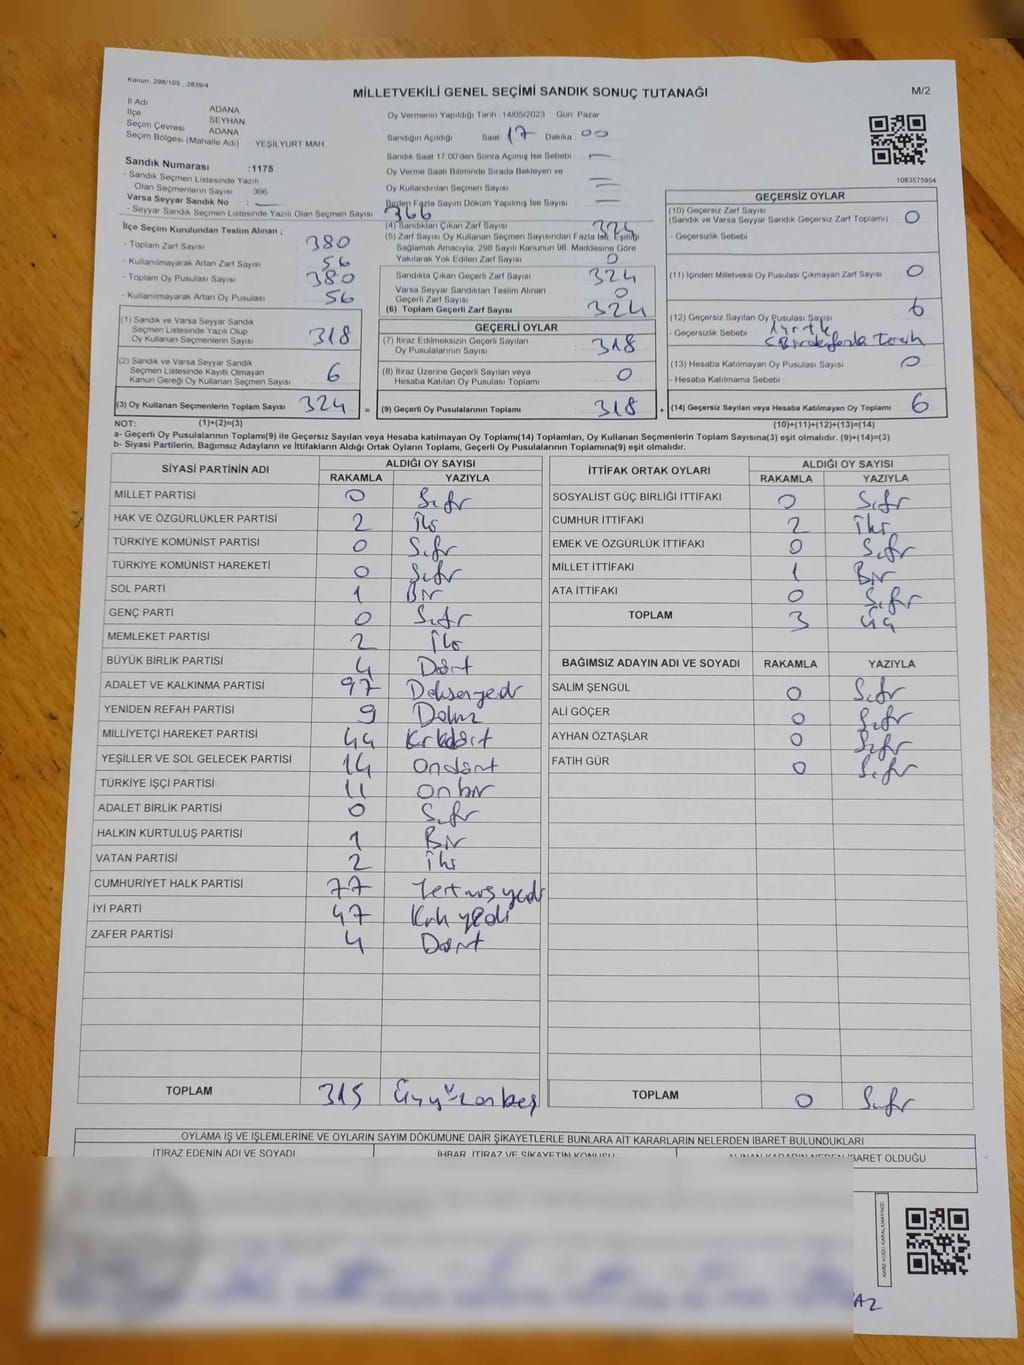 Kanun. 298/105 , 2839/4
MİLLETVEKİLİ GENEL SEÇİMİ SANDIK SONUÇ TUTANAĞI
M/2
İl Adı ADANA
İlçe SEYHAN
Seçim Çevresi ADANA
Seçim Bölgesi (Mahalle Adı) YEŞİLYURT MAH.
Sandık Numarası :1175
- Sandık Seçmen Listesinde Yazılı
Olan Seçmenlerin Sayısı 366
Varsa Seyyar Sandık No :
- Seyyar Sandık Seçmen Listesinde Yazılı Olan Seçmen Sayısı
İlçe Seçim Kurulundan Teslim Alınan ;
- Toplam Zarf Sayısı 380
- Kullanılmayarak Artan Zarf Sayısı 56
- Toplam Oy Pusulası Sayısı 380
- Kullanılmayarak Artan Oy Pusulası 56
(1) Sandık ve Varsa Seyyar Sandık
Seçmen Listesinde Yazılı Olup
Oy Kullanan Seçmenlerin Sayısı 318
(2) Sandık ve Varsa Seyyar Sandık
Seçmen Listesinde Kayıtlı Olmayan
Kanun Gereği Oy Kullanan Seçmen Sayısı 6
(3) Oy Kullanan Seçmenlerin Toplam Sayısı 324 =
Oy Vermenin Yapıldığı Tarih : 14/05/2023 Gün: Pazar
Sandığın Açıldığı Saat 17 Dakika 00
Sandık Saat 17:00'den Sonra Açılmış İse Sebebi —
Oy Verme Saati Bitiminde Sırada Bekleyen ve
Oy Kullandırılan Seçmen Sayısı —
Birden Fazla Sayım Döküm Yapılmış İse Sayısı —
366
(4) Sandıktan Çıkan Zarf Sayısı 324
(5) Zarf Sayısı Oy Kullanan Seçmen Sayısından Fazla İse, Eşitliği
Sağlamak Amacıyla, 298 Sayılı Kanunun 98. Maddesine Göre
Yakılarak Yok Edilen Zarf Sayısı 0
Sandıkta Çıkan Geçerli Zarf Sayısı 324
Varsa Seyyar Sandıktan Teslim Alınan
Geçerli Zarf Sayısı 0
(6) Toplam Geçerli Zarf Sayısı 324
GEÇERLİ OYLAR
(7) İtiraz Edilmeksizin Geçerli Sayılan
Oy Pusulalarının Sayısı 318
(8) İtiraz Üzerine Geçerli Sayılan veya
Hesaba Katılan Oy Pusulası Toplamı 0
(9) Geçerli Oy Pusulalarının Toplamı 318 +
1083575954
GEÇERSİZ OYLAR
(10) Geçersiz Zarf Sayısı
(Sandık ve Varsa Seyyar Sandık Geçersiz Zarf Toplamı) 0
- Geçersizlik Sebebi
(11) İçinden Milletvekili Oy Pusulası Çıkmayan Zarf Sayısı 0
(12) Geçersiz Sayılan Oy Pusulası Sayısı 6
- Geçersizlik Sebebi 1 yırtık
(13) Hesaba Katılmayan Oy Pusulası Sayısı 0
- Hesaba Katılmama Sebebi
(14) Geçersiz Sayılan veya Hesaba Katılmayan Oy Toplamı 6
NOT: (1)+(2)=(3) (10)+(11)+(12)+(13)=(14)
a- Geçerli Oy Pusulalarının Toplamı(9) ile Geçersiz Sayılan veya Hesaba katılmayan Oy Toplamı(14) Toplamları, Oy Kullanan Seçmenlerin Toplam Sayısına(3) eşit olmalıdır. (9)+(14)=(3)
b- Siyasi Partilerin, Bağımsız Adayların ve İttifakların Aldığı Ortak Oyların Toplamı, Geçerli Oy Pusulalarının Toplamına(9) eşit olmalıdır.
SİYASİ PARTİNİN ADI ALDIĞI OY SAYISI
RAKAMLA YAZIYLA
MİLLET PARTİSİ 0 Sıfır
HAK VE ÖZGÜRLÜKLER PARTİSİ 2 İki
TÜRKİYE KOMÜNİST PARTİSİ 0 Sıfır
TÜRKİYE KOMÜNİST HAREKETİ 0 Sıfır
SOL PARTİ 1 Bir
GENÇ PARTİ 0 Sıfır
MEMLEKET PARTİSİ 2 İki
BÜYÜK BİRLİK PARTİSİ 4 Dört
ADALET VE KALKINMA PARTİSİ 97 Doksanyedi
YENİDEN REFAH PARTİSİ 9 Dokuz
MİLLİYETÇİ HAREKET PARTİSİ 44 Kırkdört
YEŞİLLER VE SOL GELECEK PARTİSİ 14 Ondört
TÜRKİYE İŞÇİ PARTİSİ 11 onbir
ADALET BİRLİK PARTİSİ 0 Sıfır
HALKIN KURTULUŞ PARTİSİ 1 Bir
VATAN PARTİSİ 2 İki
CUMHURİYET HALK PARTİSİ 77 Yetmişyedi
İYİ PARTİ 47 Kırk yedi
ZAFER PARTİSİ 4 Dört
TOPLAM 315 Üçyüzonbeş
İTTİFAK ORTAK OYLARI ALDIĞI OY SAYISI
RAKAMLA YAZIYLA
SOSYALİST GÜÇ BİRLİĞİ İTTİFAKI 0 Sıfır
CUMHUR İTTİFAKI 2 İki
EMEK VE ÖZGÜRLÜK İTTİFAKI 0 Sıfır
MİLLET İTTİFAKI 1 Bir
ATA İTTİFAKI 0 Sıfır
TOPLAM 3 Üç
BAĞIMSIZ ADAYIN ADI VE SOYADI RAKAMLA YAZIYLA
SALİM ŞENGÜL 0 Sıfır
ALİ GÖÇER 0 Sıfır
AYHAN ÖZTAŞLAR 0 Sıfır
FATİH GÜR 0 Sıfır
TOPLAM 0 Sıfır
OYLAMA İŞ VE İŞLEMLERİNE VE OYLARIN SAYIM DÖKÜMÜNE DAİR ŞİKAYETLERLE BUNLARA AİT KARARLARIN NELERDEN İBARET BULUNDUKLARI
İTİRAZ EDENİN ADI VE SOYADI İHBAR, İTİRAZ VE ŞİKAYETİN KONUSU ALINAN KARARIN NEDEN İBARET OLDUĞU